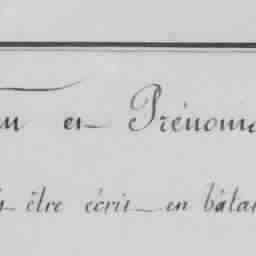 et Prénoms
être écrit en bâtar